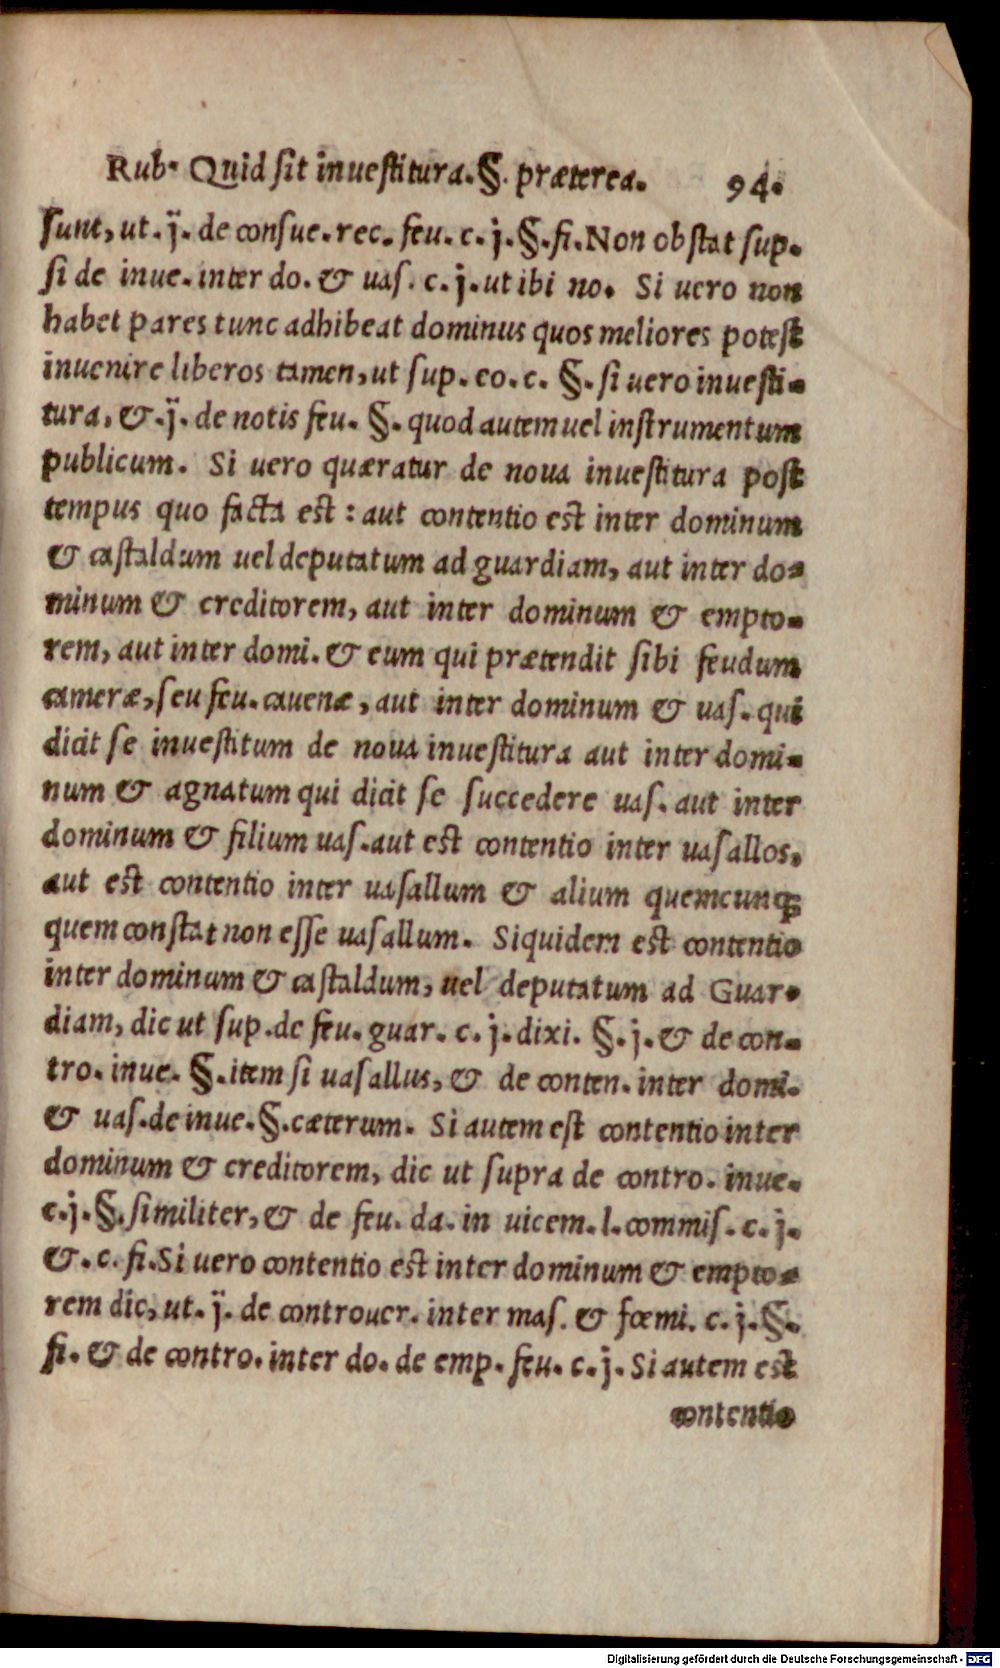 Rub. Quid sit inuestitura. §. præterea. 94.
sunt, ut. j̈. de consue. rec. feu. c. j. §. fi. Non obstat sup.
si de inue. inter do. & uas. c. j. ut ibi no. Si uero non
habet pares tunc adhibeat dominus quos meliores potest
inuenire liberos tamen, ut sup. eo. c. §. si uero inuesti-
tura, & .j̈. de notis feu. §. quod autem uel instrumentum
publicum. Si uero quæratur de noua inuestitura post
tempus quo facta est : aut contentio est inter dominum
& castaldum uel deputatum ad guardiam, aut inter do-
minum & creditorem, aut inter dominum & empto-
rem, aut inter domi. & eum qui prætendit sibi feudum
cameræ, seu feu. cauenæ, aut inter dominum & uas. qui
dicit se inuestitum de noua inuestitura aut inter domi-
num & agnatum qui dicit se succedere uas. aut inter
dominum & filium uas. aut est contentio inter uasallos,
aut est contentio inter uasallum & alium quemcunq;
quem constat non esse uasallum. Siquidem est contentio
inter dominum & castaldum, uel deputatum ad Guar-
diam, dic ut sup. de feu. guar. c. j. dixi. §. j. & de con-
tro. inue. §. item si uasallus, & de conten. inter domi.
& uas. de inue. §. cæterum. Si autem est contentio inter
dominum & creditorem, dic ut supra de contro. inue.
c. j. §. similiter, & de feu. da. in uicem. l. commis. c. j.
&. c. fi. Si uero contentio est inter dominum & empto-
rem dic, ut. j̈. de controuer. inter mas. & fœmi. c. j. §.
fi. & de contro. inter do. de emp. feu. c. j. Si autem est
contentio
Digitalisierung gefördert durch die Deutsche Forschungsgemeinschaft - DFG